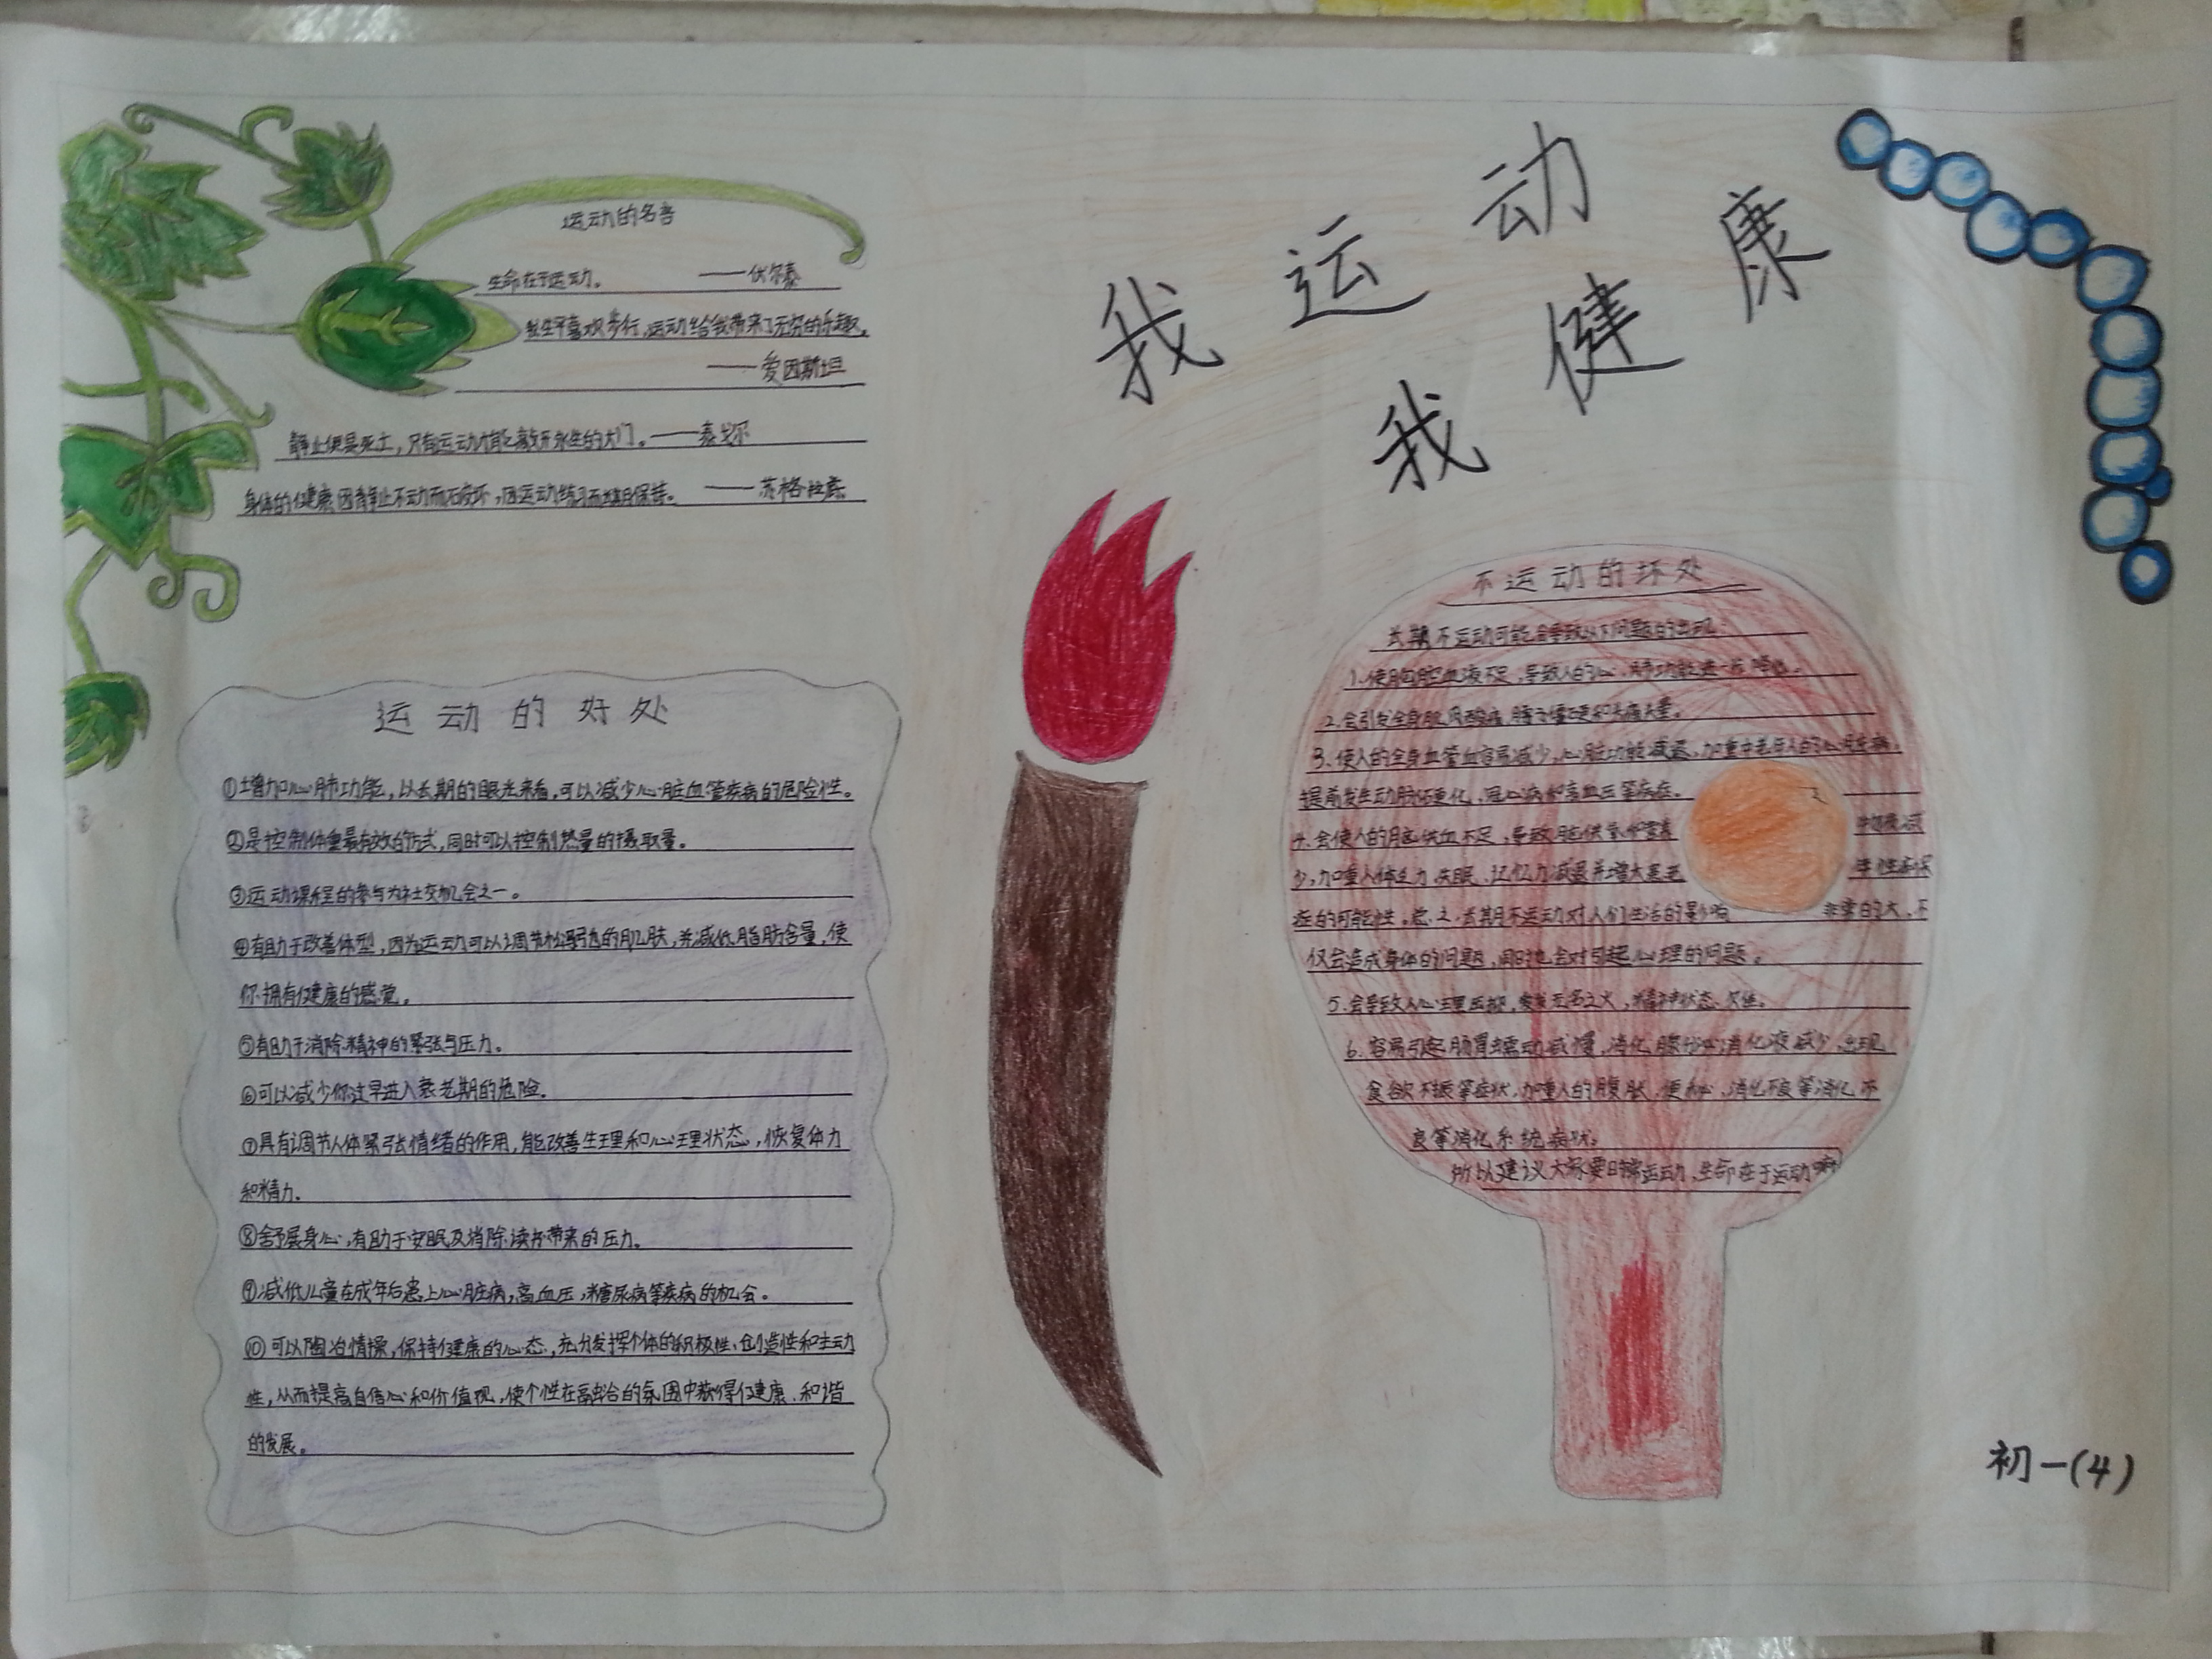 我运动
我健康
运动的名言
生命在于运动。 ——伏尔泰
我生平喜欢步行,运动给我带来了无穷的乐趣。
——爱因斯坦
静止便是死亡,只有运动才能敲开永生的大门。——泰戈尔
身体的健康因静止不动而破坏,因运动练习而长期保持。 ——苏格拉底
运动的好处
①增加心肺功能,以长期的眼光来看,可以减少心脏血管疾病的危险性。
②是控制体重最有效的方式,同时可以控制热量的摄取量。
③运动课程的参与为社交机会之一。
④有助于改善体型,因为运动可以调节松弛的肌肤,并减低脂肪含量,使
你拥有健康的感觉。
⑤有助于消除精神的紧张与压力。
⑥可以减少你过早进入衰老期的危险。
⑦具有调节人体紧张情绪的作用,能改善生理和心理状态,恢复体力
和精力。
⑧舒展身心,有助于安眠及消除读书带来的压力。
⑨减低儿童在成年后患上心脏病,高血压,糖尿病等疾病的机会。
⑩可以陶冶情操,保持健康的心态,充分发挥个体的积极性、创造性和主动
性,从而提高自信心和价值观,使个性在融洽的氛围中获得健康、和谐
的发展。
不运动的坏处
长期不运动可能会导致以下问题的出现:
1.使胸腔血液不足,导致人的心、肺功能进一步降低。
2.会引发全身肌肉酸痛、脖子僵硬和头痛头晕。
3.使人的全身血管血容易减少,心脏功能减退,加重中老年人的心
提前发生动脉硬化、冠心病和高血压等病症。
4.会使人的脑供血不足,导致脑供氧和营养
少,加重人体乏力、失眠、记忆力减退并增大患老 年性痴呆
症的可能性。总之,长期不运动对人们生活的影响 非常的大,不
仅会造成身体的问题,同时也会对引起心理的问题。
5.会导致人心理压抑,常发无名之火,精神状态欠佳。
6.容易引起肠胃蠕动减慢,消化腺分泌消化液减少,出现
食欲不振等症状,加重人的腹胀、便秘、消化不良等消化不
良等消化系统病状。
所以建议大家要日常运动,生命在于运动嘛
初一(4)